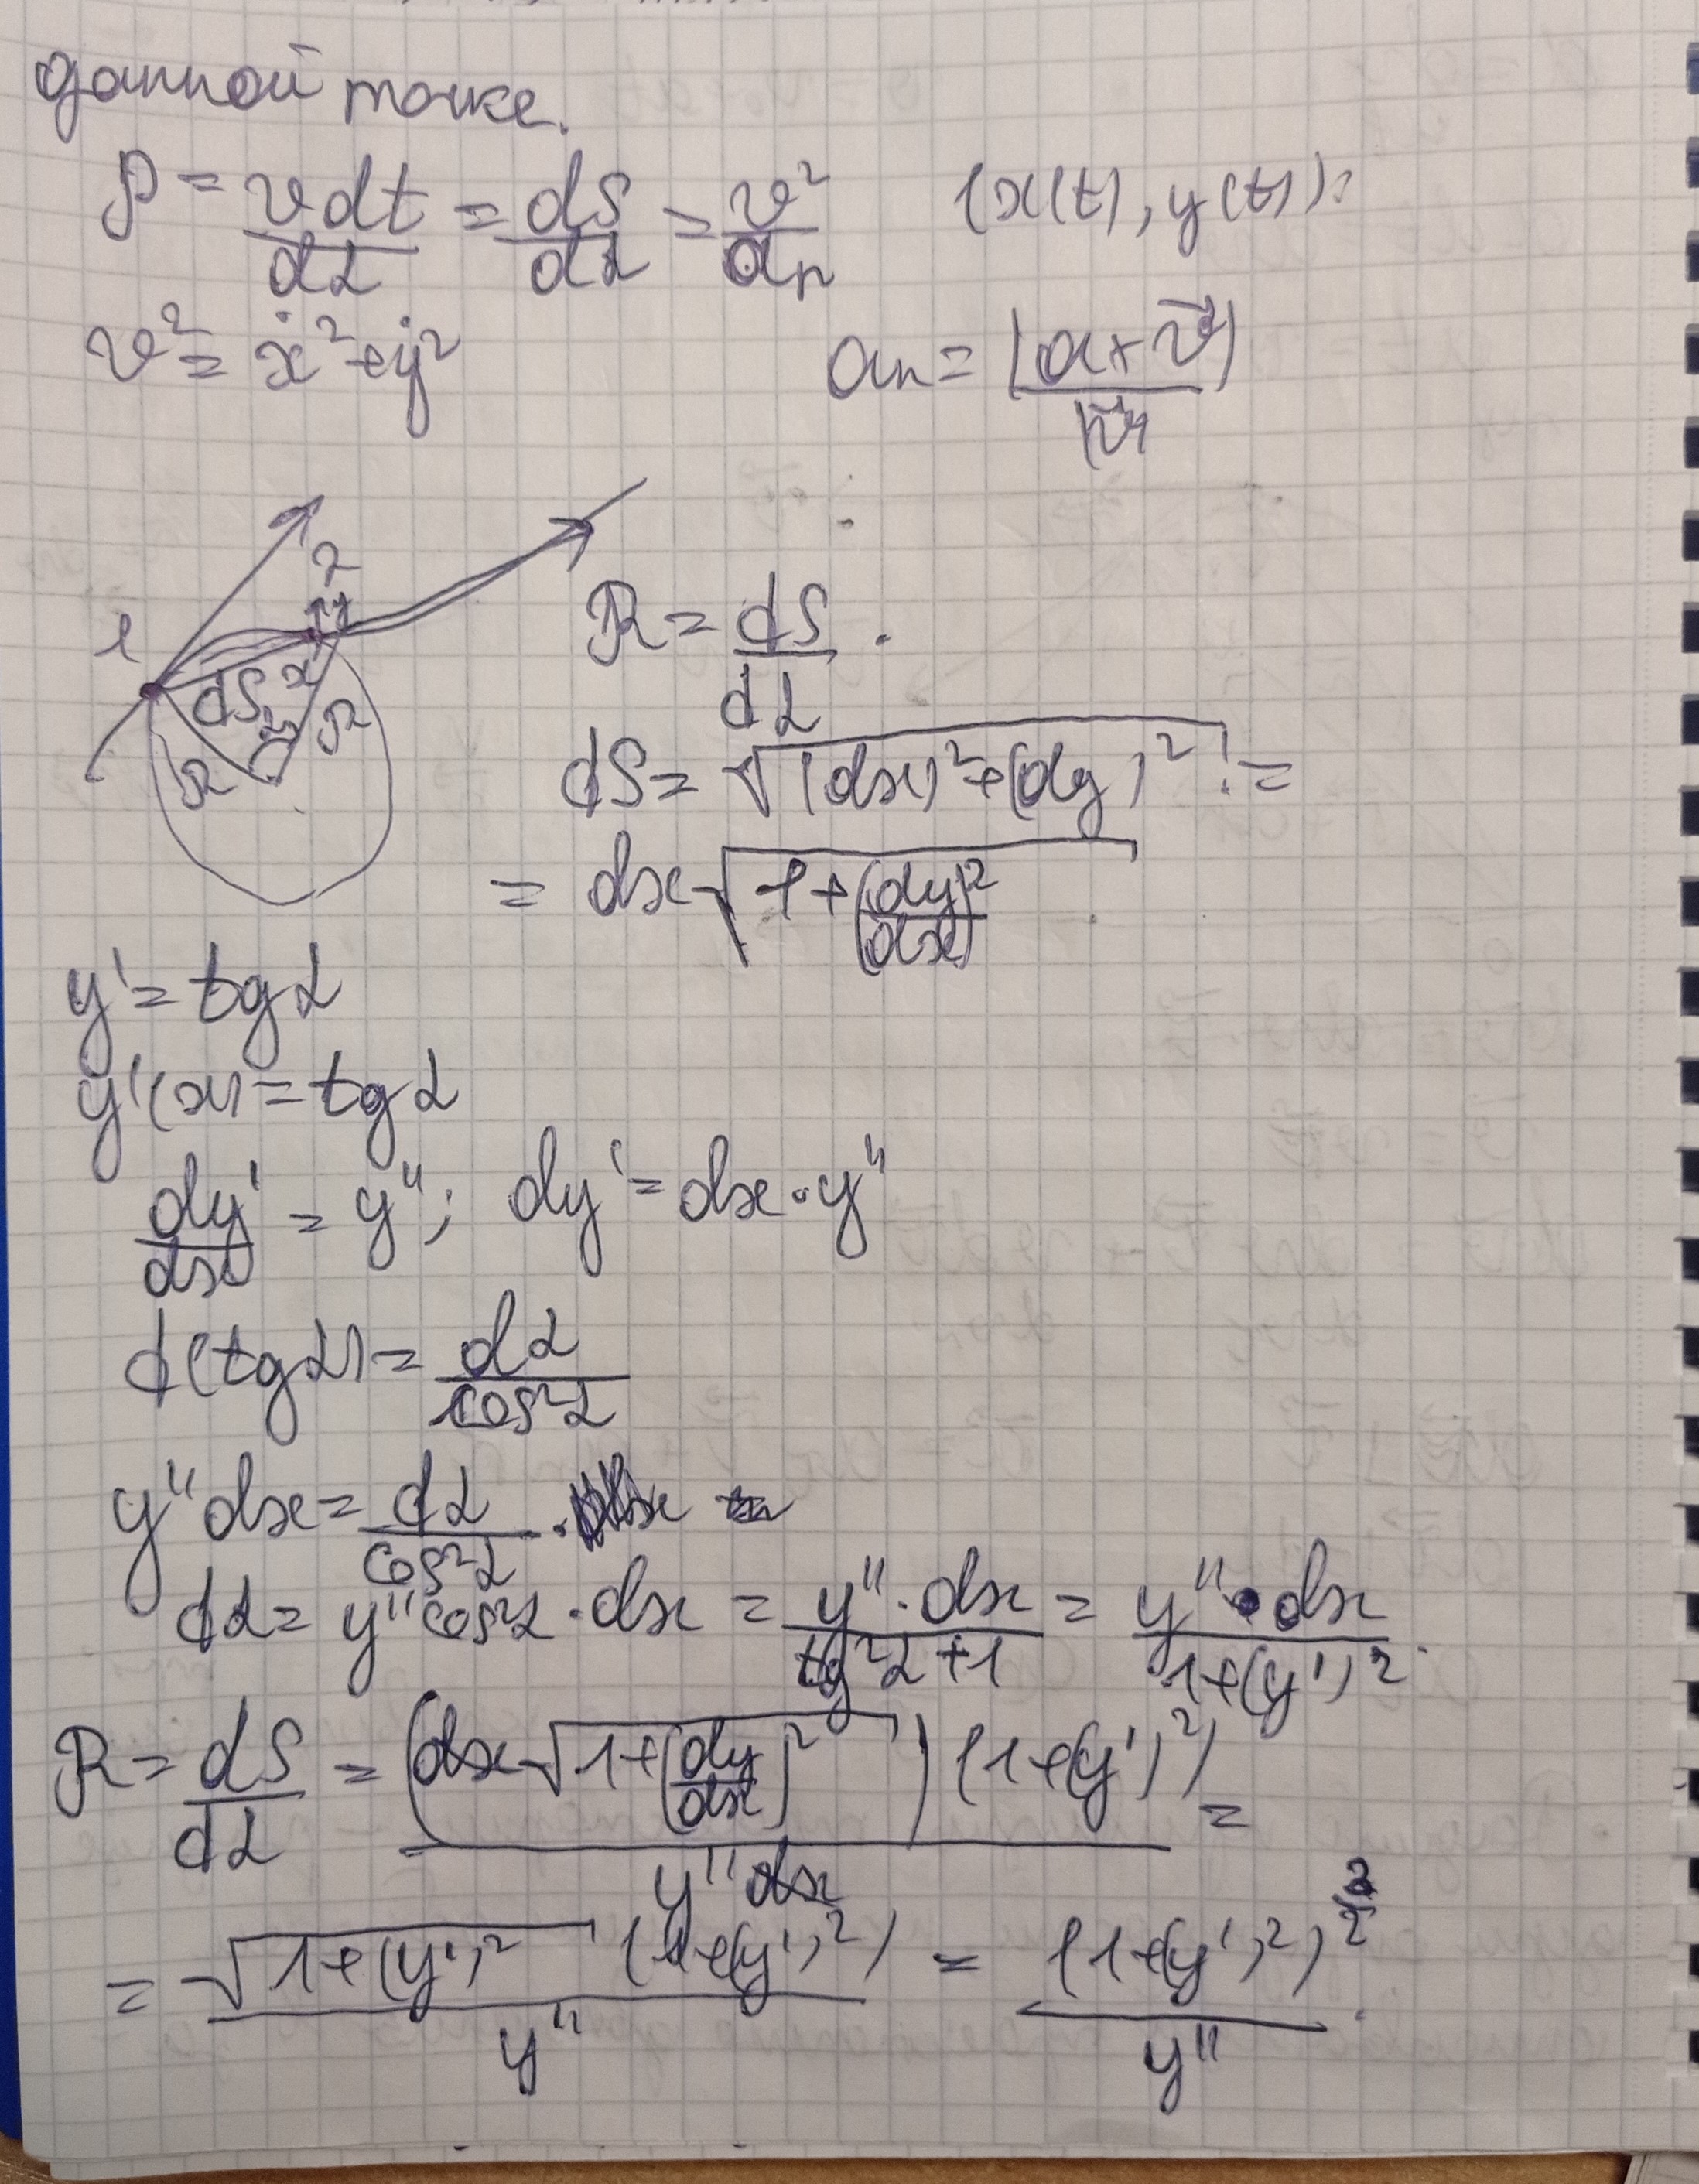 данной точке.
ρ = vdt/dα = dS/dα = v²/aₙ (x(t), y(t)):
v² = ẋ² + ẏ² aₙ = |a × v⃗|/|v⃗|
2
1
dS
dα
R R
R = dS/dα.
dS = √((dx)² + (dy)²) =
= dx√(1 + (dy/dx)²)
y' = tgα
y'(x) = tgα
dy'/dx = y''; dy' = dx·y''
d(tgα) = dα/cos²α
y''dx = dα/cos²α
dα = y''cos²α · dx = y''·dx/(tg²α + 1) = y''·dx/(1 + (y')²).
R = dS/dα = (dx√(1 + (dy/dx)²))(1 + (y')²)/(y''dx) =
= √(1 + (y')²) (1 + (y')²)/y'' = (1 + (y')²)^(3/2)/y''.